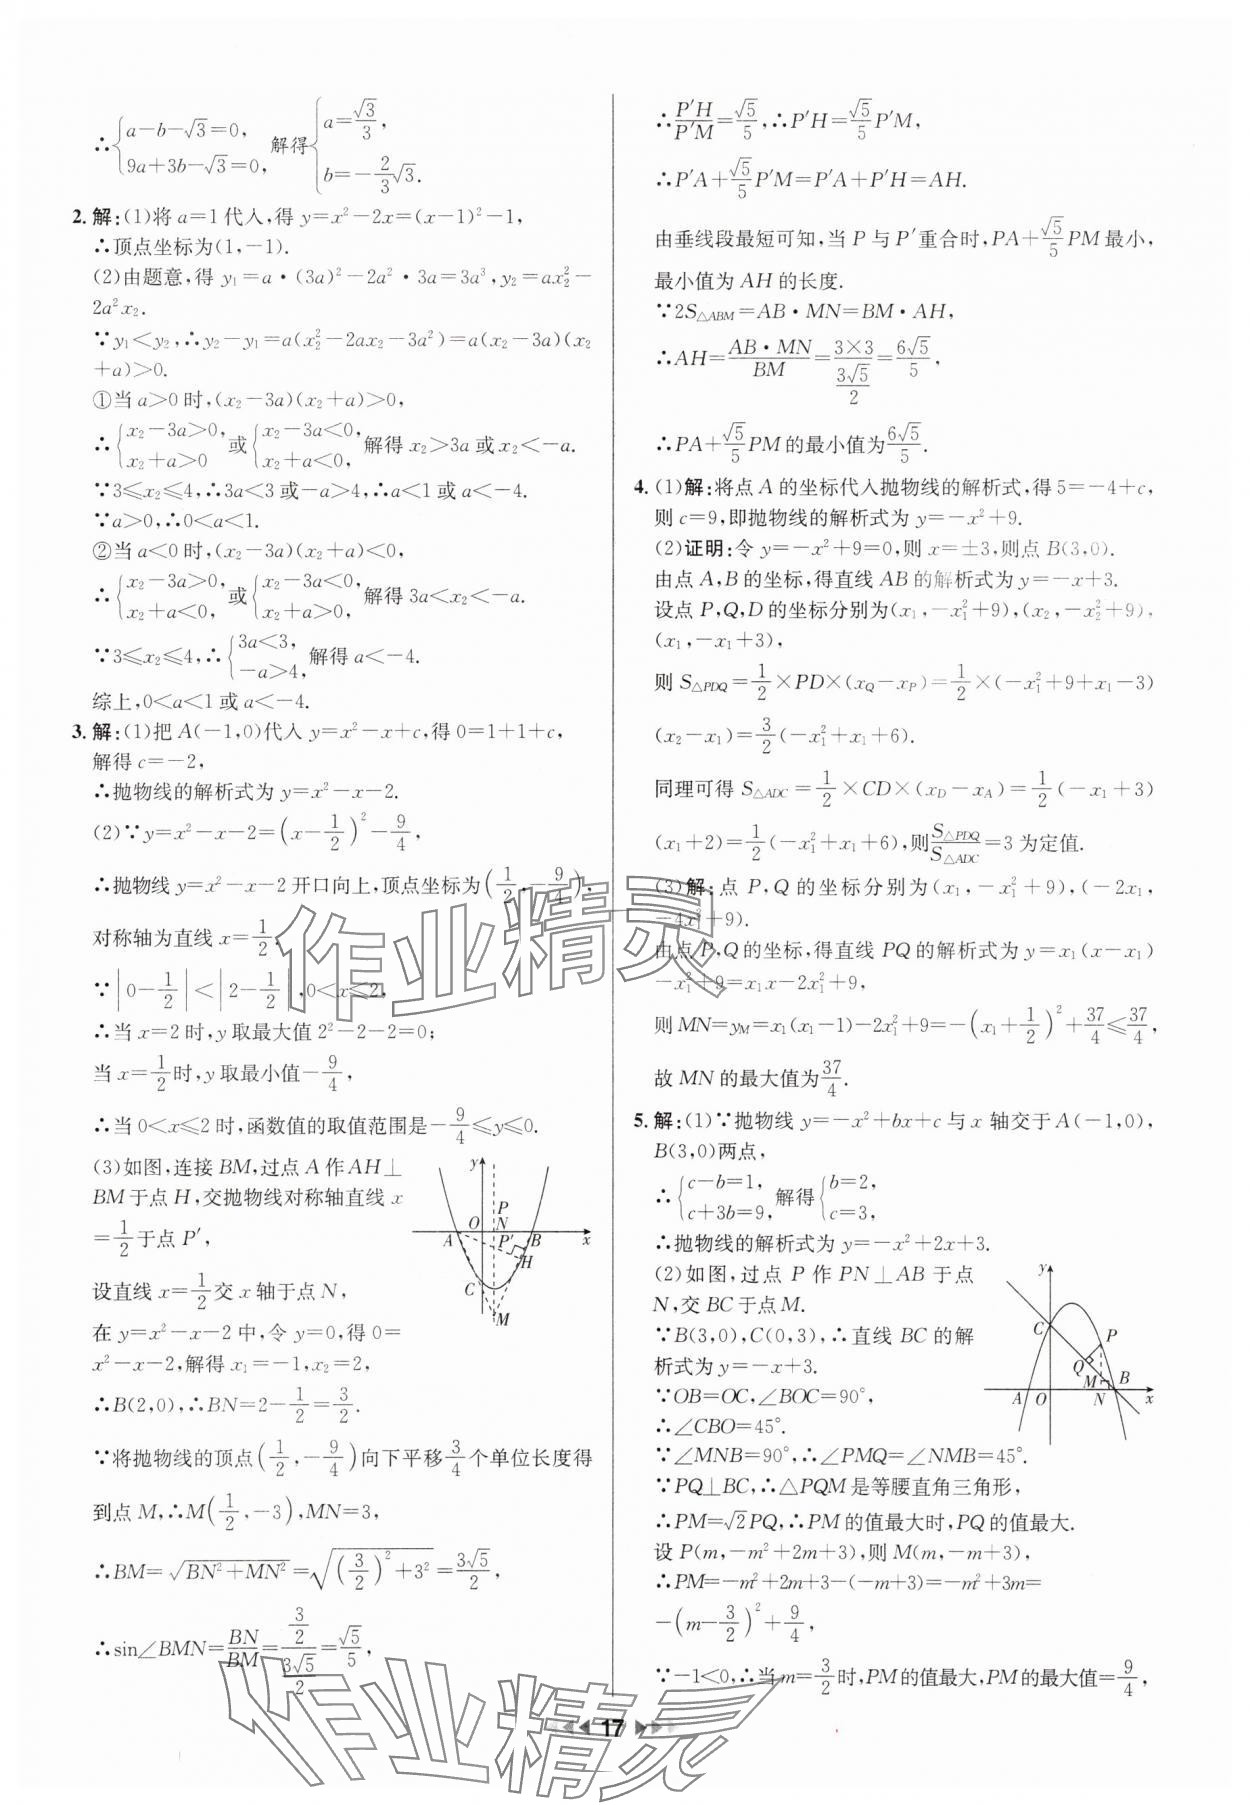 ∴{a-b-√3=0, 9a+3b-√3=0, 解得{a=√3/3, b=-2/3√3.
2.解:(1)将a=1代入,得y=x²-2x=(x-1)²-1,
∴顶点坐标为(1,-1).
(2)由题意,得y₁=a·(3a)²-2a²·3a=3a³,y₂=ax₂²-
2a²x₂.
∵y₁<y₂,∴y₂-y₁=a(x₂²-2ax₂-3a²)=a(x₂-3a)(x₂
+a)>0.
①当a>0时,(x₂-3a)(x₂+a)>0,
∴{x₂-3a>0, x₂+a>0 或{x₂-3a<0, x₂+a<0, 解得x₂>3a或x₂<-a.
∵3≤x₂≤4,∴3a<3或-a>4,∴a<1或a<-4.
∵a>0,∴0<a<1.
②当a<0时,(x₂-3a)(x₂+a)<0,
∴{x₂-3a>0, x₂+a<0, 或{x₂-3a<0, x₂+a>0, 解得3a<x₂<-a.
∵3≤x₂≤4,∴{3a<3, -a>4, 解得a<-4.
综上,0<a<1或a<-4.
3.解:(1)把A(-1,0)代入y=x²-x+c,得0=1+1+c,
解得c=-2,
∴抛物线的解析式为y=x²-x-2.
(2)∵y=x²-x-2=(x-1/2)²-9/4,
∴抛物线y=x²-x-2开口向上,顶点坐标为(1/2,-9/4),
对称轴为直线x=1/2.
∵|0-1/2|<|2-1/2|,0<x≤2,
∴当x=2时,y取最大值2²-2-2=0;
当x=1/2时,y取最小值-9/4,
∴当0<x≤2时,函数值的取值范围是-9/4≤y≤0.
(3)如图,连接BM,过点A作AH⊥
BM于点H,交抛物线对称轴直线x
=1/2于点P′,
设直线x=1/2交x轴于点N,
在y=x²-x-2中,令y=0,得0=
x²-x-2,解得x₁=-1,x₂=2,
∴B(2,0),∴BN=2-1/2=3/2.
y
P
O N
A P′ B x
H
C
M
∵将抛物线的顶点(1/2,-9/4)向下平移3/4个单位长度得
到点M,∴M(1/2,-3),MN=3,
∴BM=√(BN²+MN²)=√((3/2)²+3²)=3√5/2,
∴sin∠BMN=BN/BM=(3/2)/(3√5/2)=√5/5,
∴P′H/P′M=√5/5,∴P′H=√5/5P′M,
∴P′A+√5/5P′M=P′A+P′H=AH.
由垂线段最短可知,当P与P′重合时,PA+√5/5PM最小,
最小值为AH的长度.
∵2S△ABM=AB·MN=BM·AH,
∴AH=AB·MN/BM=(3×3)/(3√5/2)=6√5/5,
∴PA+√5/5PM的最小值为6√5/5.
4.(1)解:将点A的坐标代入抛物线的解析式,得5=-4+c,
则c=9,即抛物线的解析式为y=-x²+9.
(2)证明:令y=-x²+9=0,则x=±3,则点B(3,0).
由点A,B的坐标,得直线AB的解析式为y=-x+3.
设点P,Q,D的坐标分别为(x₁,-x₁²+9),(x₂,-x₂²+9),
(x₁,-x₁+3),
则S△PDQ=1/2×PD×(xQ-xP)=1/2×(-x₁²+9+x₁-3)
(x₂-x₁)=3/2(-x₁²+x₁+6).
同理可得S△ADC=1/2×CD×(xD-xA)=1/2(-x₁+3)
(x₁+2)=1/2(-x₁²+x₁+6),则S△PDQ/S△ADC=3为定值.
(3)解:点P,Q的坐标分别为(x₁,-x₁²+9),(-2x₁,
-4x₁²+9).
由点P,Q的坐标,得直线PQ的解析式为y=x₁(x-x₁)
-x₁²+9=x₁x-2x₁²+9,
则MN=yM=x₁(x₁-1)-2x₁²+9=-(x₁+1/2)²+37/4≤37/4,
故MN的最大值为37/4.
5.解:(1)∵抛物线y=-x²+bx+c与x轴交于A(-1,0),
B(3,0)两点,
∴{c-b=1, c+3b=9, 解得{b=2, c=3,
∴抛物线的解析式为y=-x²+2x+3.
(2)如图,过点P作PN⊥AB于点
N,交BC于点M.
∵B(3,0),C(0,3),∴直线BC的解
析式为y=-x+3.
∵OB=OC,∠BOC=90°,
∴∠CBO=45°.
y
C P
Q
M B
A O N x
∵∠MNB=90°,∴∠PMQ=∠NMB=45°.
∵PQ⊥BC,∴△PQM是等腰直角三角形,
∴PM=√2PQ,∴PM的值最大时,PQ的值最大.
设P(m,-m²+2m+3),则M(m,-m+3),
∴PM=-m²+2m+3-(-m+3)=-m²+3m=
-(m-3/2)²+9/4,
∵-1<0,∴当m=3/2时,PM的值最大,PM的最大值=9/4,
17
作业精灵
作业精灵